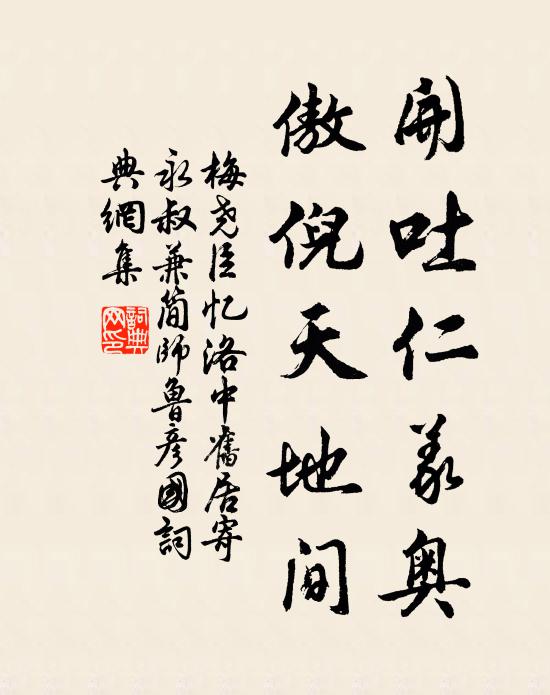 開吐仁義奧
傲倪天地間
梅堯臣忆洛中舊居寄
永叔兼簡師魯彥國詞
典網集
詞典
网印